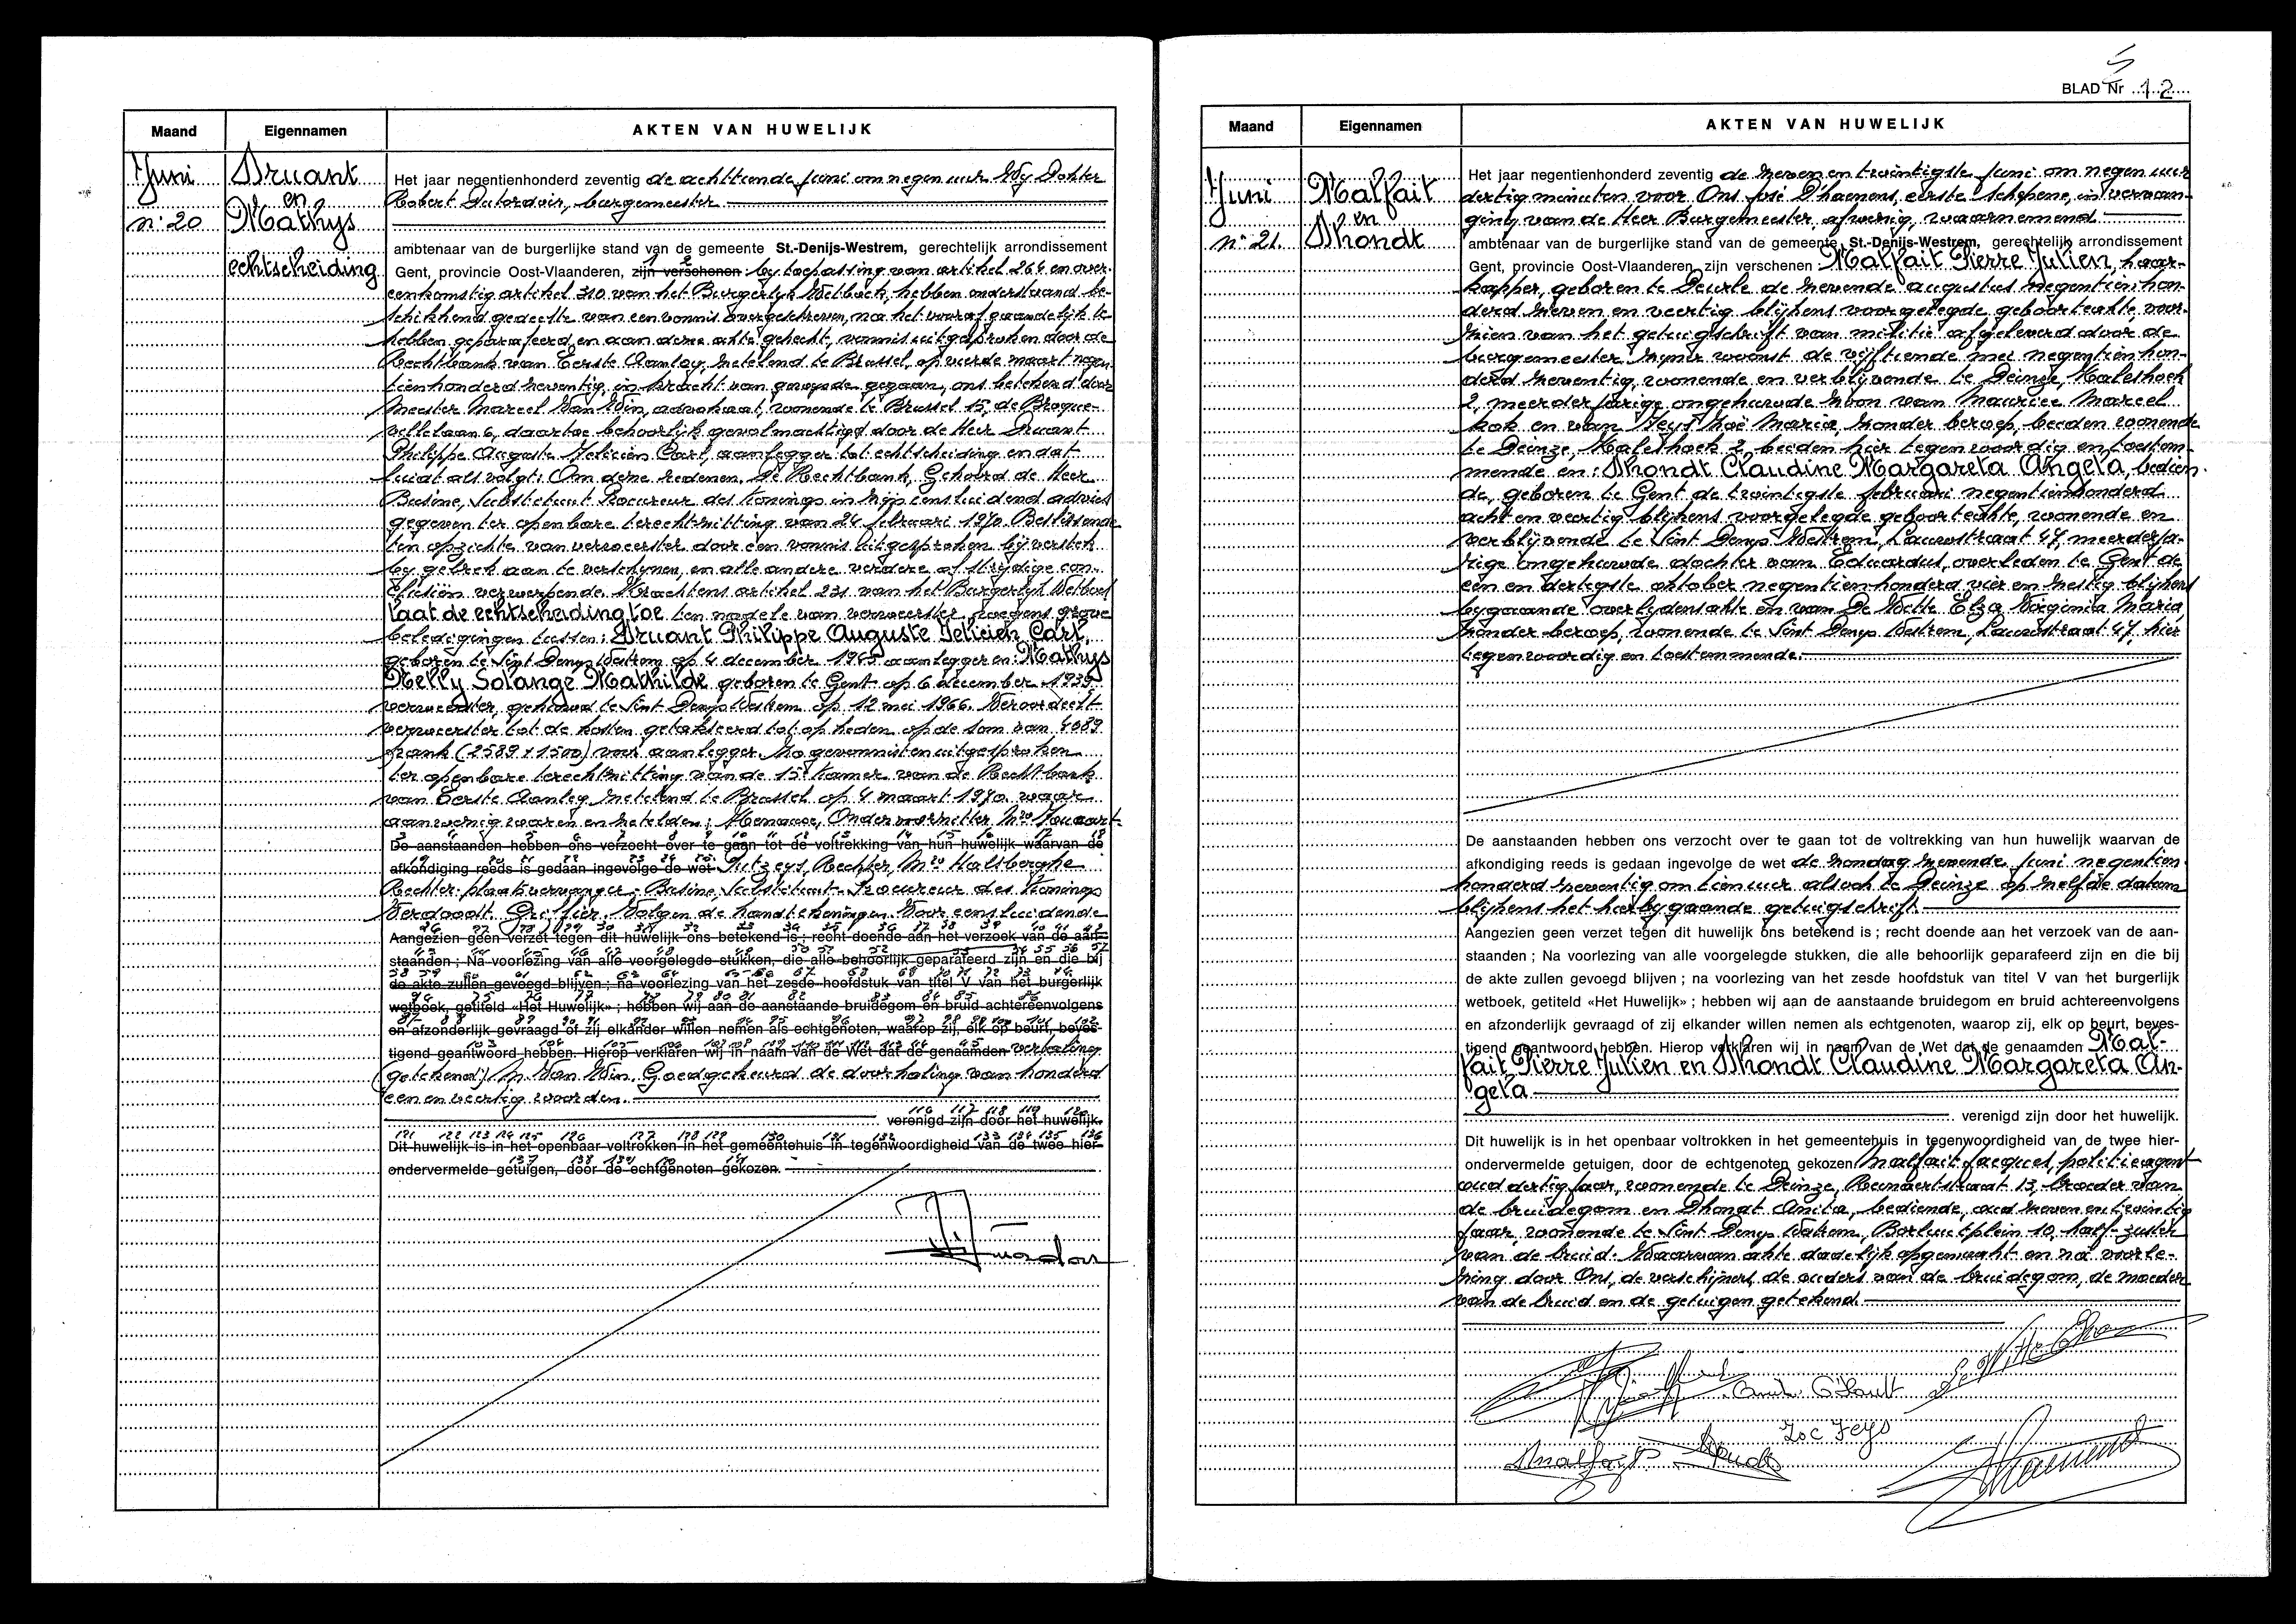 Maand
Eigennamen
AKTEN VAN HUWELIJK
Juni
n° 20
Druant
en
Mathys
echtscheiding
Het jaar negentienhonderd zeventig de achttiende juni om negen uur Wy Dokter
Robert Dutordoir, burgemeester
ambtenaar van de burgerlijke stand van de gemeente St.-Denijs-Westrem, gerechtelijk arrondissement
Gent, provincie Oost-Vlaanderen, zijn verschenen by toepassing van artikel 264 en over-
eenkomstig artikel 310 van het Burgerlyk Wetboek, hebben onderstaand be-
schikkend gedeelte van een vonnis overgeschreven, na het vooraf gaandelijk te
hebben geparafeerd en aan deze akte gehecht, vonnis uitgesproken door de
Rechtbank van Eerste Aanleg, zetelend te Brussel, op vierde maart negen-
tienhonderd zeventig, in kracht van gewysde gegaan, ons betekend door
Meester Marcel Van Win, advokaat, wonende te Brussel 15, de Broque-
villelaan 6, daartoe behoorlijk gevolmachtigd door de Heer Druant
Philippe Auguste Felicien Carl, aanlegger tot echtscheiding en dat
luidt als volgt: Om deze redenen. De Rechtbank, Gehoord de Heer
Busine, Substituut Procureur des Konings in zijn eensluidend advies
gegeven ter openbare terechtzitting van 24 februari 1970. Beslissende
ten opzichte van verweerster door een vonnis uitgesproken bij verstek
by gebrek aan te verschynen, en alle andere verdere of strijdige con-
clusiën verwerpende. Krachtens artikel 231 van het Burgerlyk Wetboek
laat de echtscheiding toe ten nadele van verweerster wegens grove
beledigingen tussen: Druant Philippe Auguste Felicien Carl,
geboren te Sint Denys Westrem op 4 december 1945 aanlegger en: Mathys
Nelly Solange Mathilde geboren te Gent op 6 december 1939
verweerster, gehuwd te Sint Denys Westrem op 12 mei 1966. Veroordeelt
verweerster tot de kosten getakseerd tot op heden op de som van 4089
frank (2589 + 1500) voor aanlegger. Zo gevonnist en uitgesproken
ter openbare terechtzitting van de 15e Kamer van de Rechtbank
van Eerste Aanleg zetelend te Brussel op 4 maart 1970. waar
aanwezig waren en zetelden: Ondervoorzitter,
De aanstaanden hebben ons verzocht over te gaan tot de voltrekking van hun huwelijk waarvan de
afkondiging reeds is gedaan ingevolge de wet Putzeys, Rechter, Halsberghe
Rechter-plaatsvervanger, Busine, Substituut-Procureur des Konings
Verdoodt, Griffier. Volgen de handtekeningen. Voor eensluidende
Aangezien geen verzet tegen dit huwelijk ons betekend is ; recht doende aan het verzoek van de aan-
staanden ; Na voorlezing van alle voorgelegde stukken, die alle behoorlijk geparafeerd zijn en die bij
de akte zullen gevoegd blijven ; na voorlezing van het zesde hoofdstuk van titel V van het burgerlijk
wetboek, getiteld «Het Huwelijk» ; hebben wij aan de aanstaande bruidegom en bruid achtereenvolgens
en afzonderlijk gevraagd of zij elkander willen nemen als echtgenoten, waarop zij, elk op beurt, beves-
tigend geantwoord hebben. Hierop verklaren wij in naam van de Wet dat de genaamden vertaling
(getekend) M. Van Win. Goedgekeurd de doorhaling van honderd
een en veertig woorden.
verenigd zijn door het huwelijk.
Dit huwelijk is in het openbaar voltrokken in het gemeentehuis in tegenwoordigheid van de twee hier-
ondervermelde getuigen, door de echtgenoten gekozen.
BLAD Nr 12
Maand
Eigennamen
AKTEN VAN HUWELIJK
Juni
n° 21
Malfait
en
Dhondt
Het jaar negentienhonderd zeventig de zevenentwintigste juni om negen uur
dertig minuten voor Ons José D'haenens, eerste schepene, in vervan-
ging van de Heer Burgemeester, afwezig, waarnemend
ambtenaar van de burgerlijke stand van de gemeente St.-Denijs-Westrem, gerechtelijk arrondissement
Gent, provincie Oost-Vlaanderen, zijn verschenen Malfait Pierre Julien, haar-
kapper, geboren te Deurle de zevende augustus negentienhon-
derd zeven en veertig blijkens voorgelegde geboorteakte, voor-
zien van het getuigschrift van militie afgeleverd door de
burgemeester zyner woonst de vijftiende mei negentienhon-
derd zeventig, wonende en verblijvende te Deinze, Kaleshoek
2, meerderjarige ongehuwde zoon van Maurice Marcel
kok en van Feys Zoë Maria, zonder beroep, beiden wonende
te Deinze, Kaleshoek 2, beiden hier tegenwoordig en toestem-
mende en: Dhondt Claudine Margareta Angela, bedien-
de, geboren te Gent de twintigste februari negentienhonderd
acht en veertig blijkens voorgelegde geboorteakte, wonende en
verblijvende te Sint Denys Westrem, Lauwstraat 47, meerderja-
rige ongehuwde dochter van Eduardus, overleden te Gent de
een en dertigste oktober negentienhonderd vier en zestig blijkens
bygaande overlijdensakte en van De Witte Elza Virginia Maria
zonder beroep, wonende te Sint Denys Westrem, Lauwstraat 47, hier
tegenwoordig en toestemmende.
De aanstaanden hebben ons verzocht over te gaan tot de voltrekking van hun huwelijk waarvan de
afkondiging reeds is gedaan ingevolge de wet de zondag zevende juni negentien-
honderd zeventig om tien uur alsook te Deinze op zelfde datum
blijkens het hierby gaande getuigschrift.
Aangezien geen verzet tegen dit huwelijk ons betekend is ; recht doende aan het verzoek van de aan-
staanden ; Na voorlezing van alle voorgelegde stukken, die alle behoorlijk geparafeerd zijn en die bij
de akte zullen gevoegd blijven ; na voorlezing van het zesde hoofdstuk van titel V van het burgerlijk
wetboek, getiteld «Het Huwelijk» ; hebben wij aan de aanstaande bruidegom en bruid achtereenvolgens
en afzonderlijk gevraagd of zij elkander willen nemen als echtgenoten, waarop zij, elk op beurt, beves-
tigend geantwoord hebben. Hierop verklaren wij in naam van de Wet dat de genaamden Mal-
fait Pierre Julien en Dhondt Claudine Margareta An-
gela
verenigd zijn door het huwelijk.
Dit huwelijk is in het openbaar voltrokken in het gemeentehuis in tegenwoordigheid van de twee hier-
ondervermelde getuigen, door de echtgenoten gekozen Malfait Jacques, politieagent
oud dertig jaar, wonende te Deinze, Reinaertstraat 13, broeder van
de bruidegom en Dhondt Anita, bediende, oud zeven en twintig
jaar, wonende te Sint Denys Westrem, Borluutplein 10, half-zuster
van de bruid. Waarvan akte dadelijk opgemaakt en na voorle-
zing door Ons, de verschijners, de ouders van de bruidegom, de moeder
van de bruid en de getuigen getekend.
Zoe Feys
Malfait